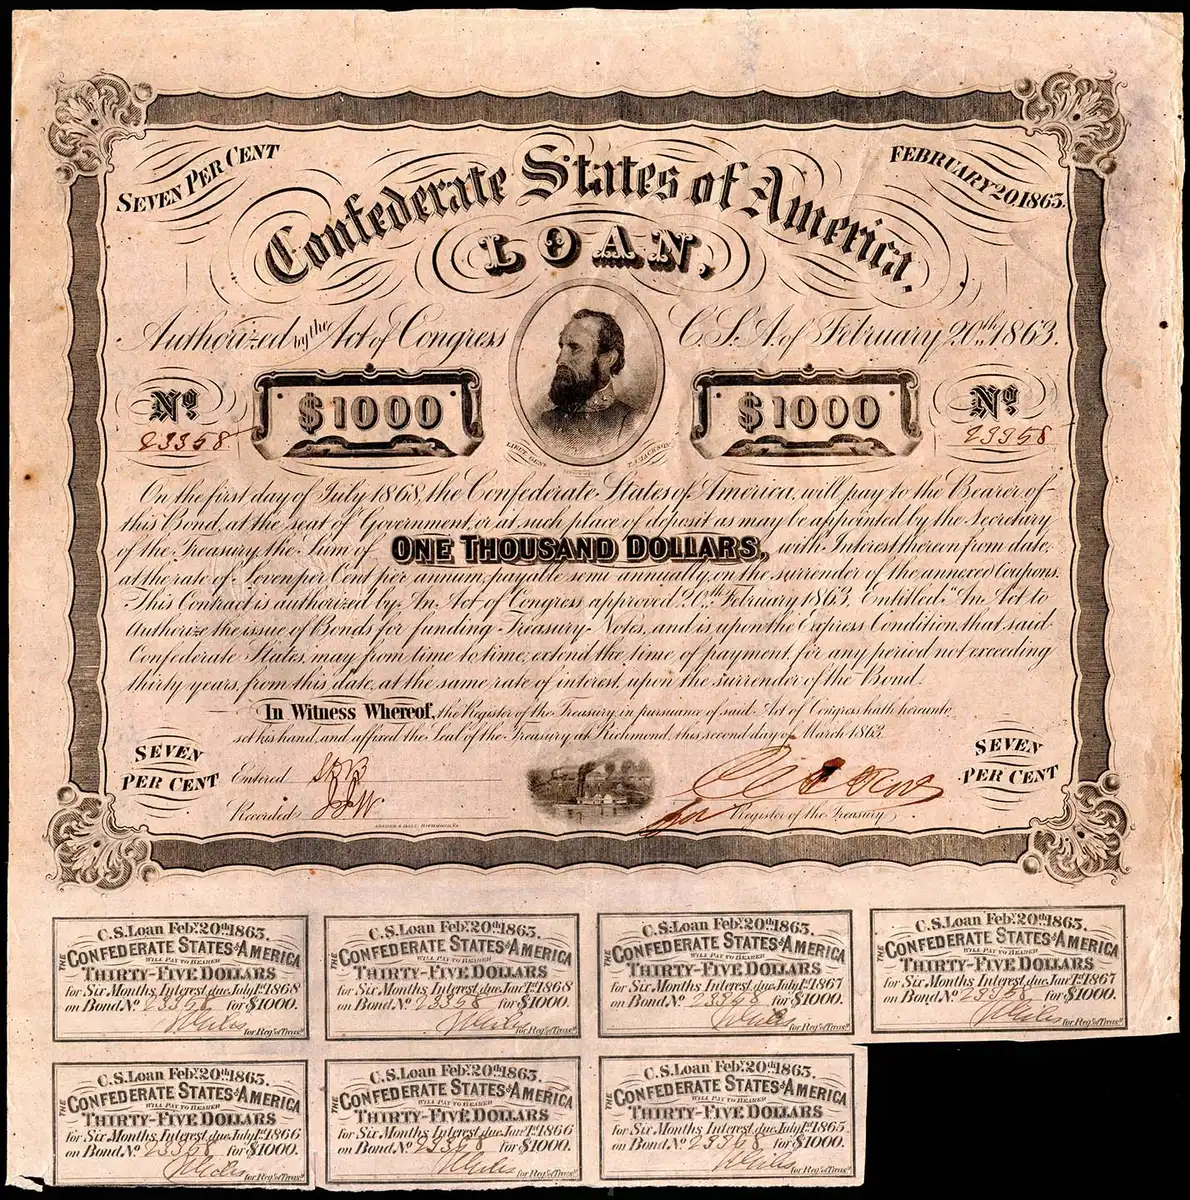 SEVEN PER CENT
FEBRUARY 20, 1863.
Confederate States of America.
LOAN,
Authorized by the Act of Congress C.S.A. of February 20th, 1863.
No
23358
$1000
$1000
No
23358
LIEUT. GENL T.J. JACKSON
On the first day of July 1868, the Confederate States of America, will pay to the Bearer of
this Bond, at the seat of Government, or at such place of deposit as may be appointed by the Secretary
of the Treasury, the Sum of ONE THOUSAND DOLLARS, with Interest thereon from date,
at the rate of Seven per Cent per annum, payable semi annually, on the surrender of the annexed Coupons.
This Contract is authorized by An Act of Congress approved 20th February 1863, Entitled "An Act to
Authorize the issue of Bonds for funding Treasury Notes, and is upon the Express Condition, that said
Confederate States, may from time to time, extend the time of payment for any period not exceeding
thirty years, from this date, at the same rate of interest, upon the surrender of the Bond.
In Witness Whereof, the Register of the Treasury, in pursuance of said Act of Congress hath hereunto
set his hand, and affixed the Seal of the Treasury at Richmond, this second day of March 1863.
SEVEN
PER CENT
Entered
Recorded
for Register of the Treasury
SEVEN
PER CENT
C.S. Loan Feby. 20th 1863.
THE CONFEDERATE STATES OF AMERICA
WILL PAY TO BEARER
THIRTY-FIVE DOLLARS
for Six Months Interest, due July 1st 1868
on Bond No 23358 for $1000.
for Regr. of Treasy.
C.S. Loan Feby. 20th 1863.
THE CONFEDERATE STATES OF AMERICA
WILL PAY TO BEARER
THIRTY-FIVE DOLLARS
for Six Months Interest, due Jany 1st 1868
on Bond No 23358 for $1000.
for Regr. of Treasy.
C.S. Loan Feby. 20th 1863.
THE CONFEDERATE STATES OF AMERICA
WILL PAY TO BEARER
THIRTY-FIVE DOLLARS
for Six Months Interest, due July 1st 1867
on Bond No 23358 for $1000.
for Regr. of Treasy.
C.S. Loan Feby. 20th 1863.
THE CONFEDERATE STATES OF AMERICA
WILL PAY TO BEARER
THIRTY-FIVE DOLLARS
for Six Months Interest, due Jany 1st 1867
on Bond No 23358 for $1000.
for Regr. of Treasy.
C.S. Loan Feby. 20th 1863.
THE CONFEDERATE STATES OF AMERICA
WILL PAY TO BEARER
THIRTY-FIVE DOLLARS
for Six Months Interest, due July 1st 1866
on Bond No 23358 for $1000.
for Regr. of Treasy.
C.S. Loan Feby. 20th 1863.
THE CONFEDERATE STATES OF AMERICA
WILL PAY TO BEARER
THIRTY-FIVE DOLLARS
for Six Months Interest, due Jany 1st 1866
on Bond No 23358 for $1000.
for Regr. of Treasy.
C.S. Loan Feby. 20th 1863.
THE CONFEDERATE STATES OF AMERICA
WILL PAY TO BEARER
THIRTY-FIVE DOLLARS
for Six Months Interest, due July 1st 1865
on Bond No 23358 for $1000.
for Regr. of Treasy.